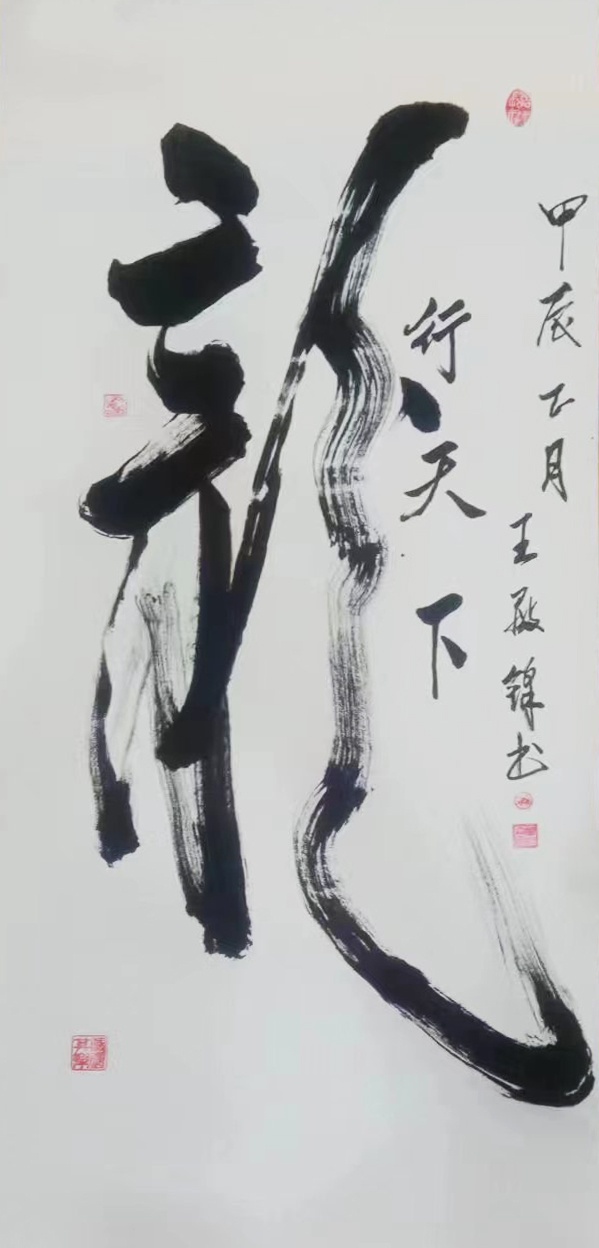 龍
行天下
甲辰正月
王殿锋书